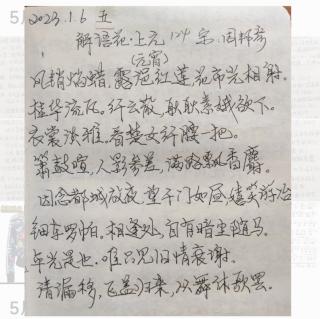 2023.1.6 五
解语花·上元 124 宋·周邦彦
(元宵)
风销焰蜡,露浥红莲,花市光相射。
桂华流瓦。纤云散,耿耿素娥欲下。
衣裳淡雅。看楚女纤腰一把。
箫鼓喧,人影参差,满路飘香麝。
因念都城放夜,望千门如昼,嬉笑游冶。
钿车罗帕。相逢处,自有暗尘随马。
年光是也。唯只见旧情衰谢。
清漏移,飞盖归来,从舞休歌罢。